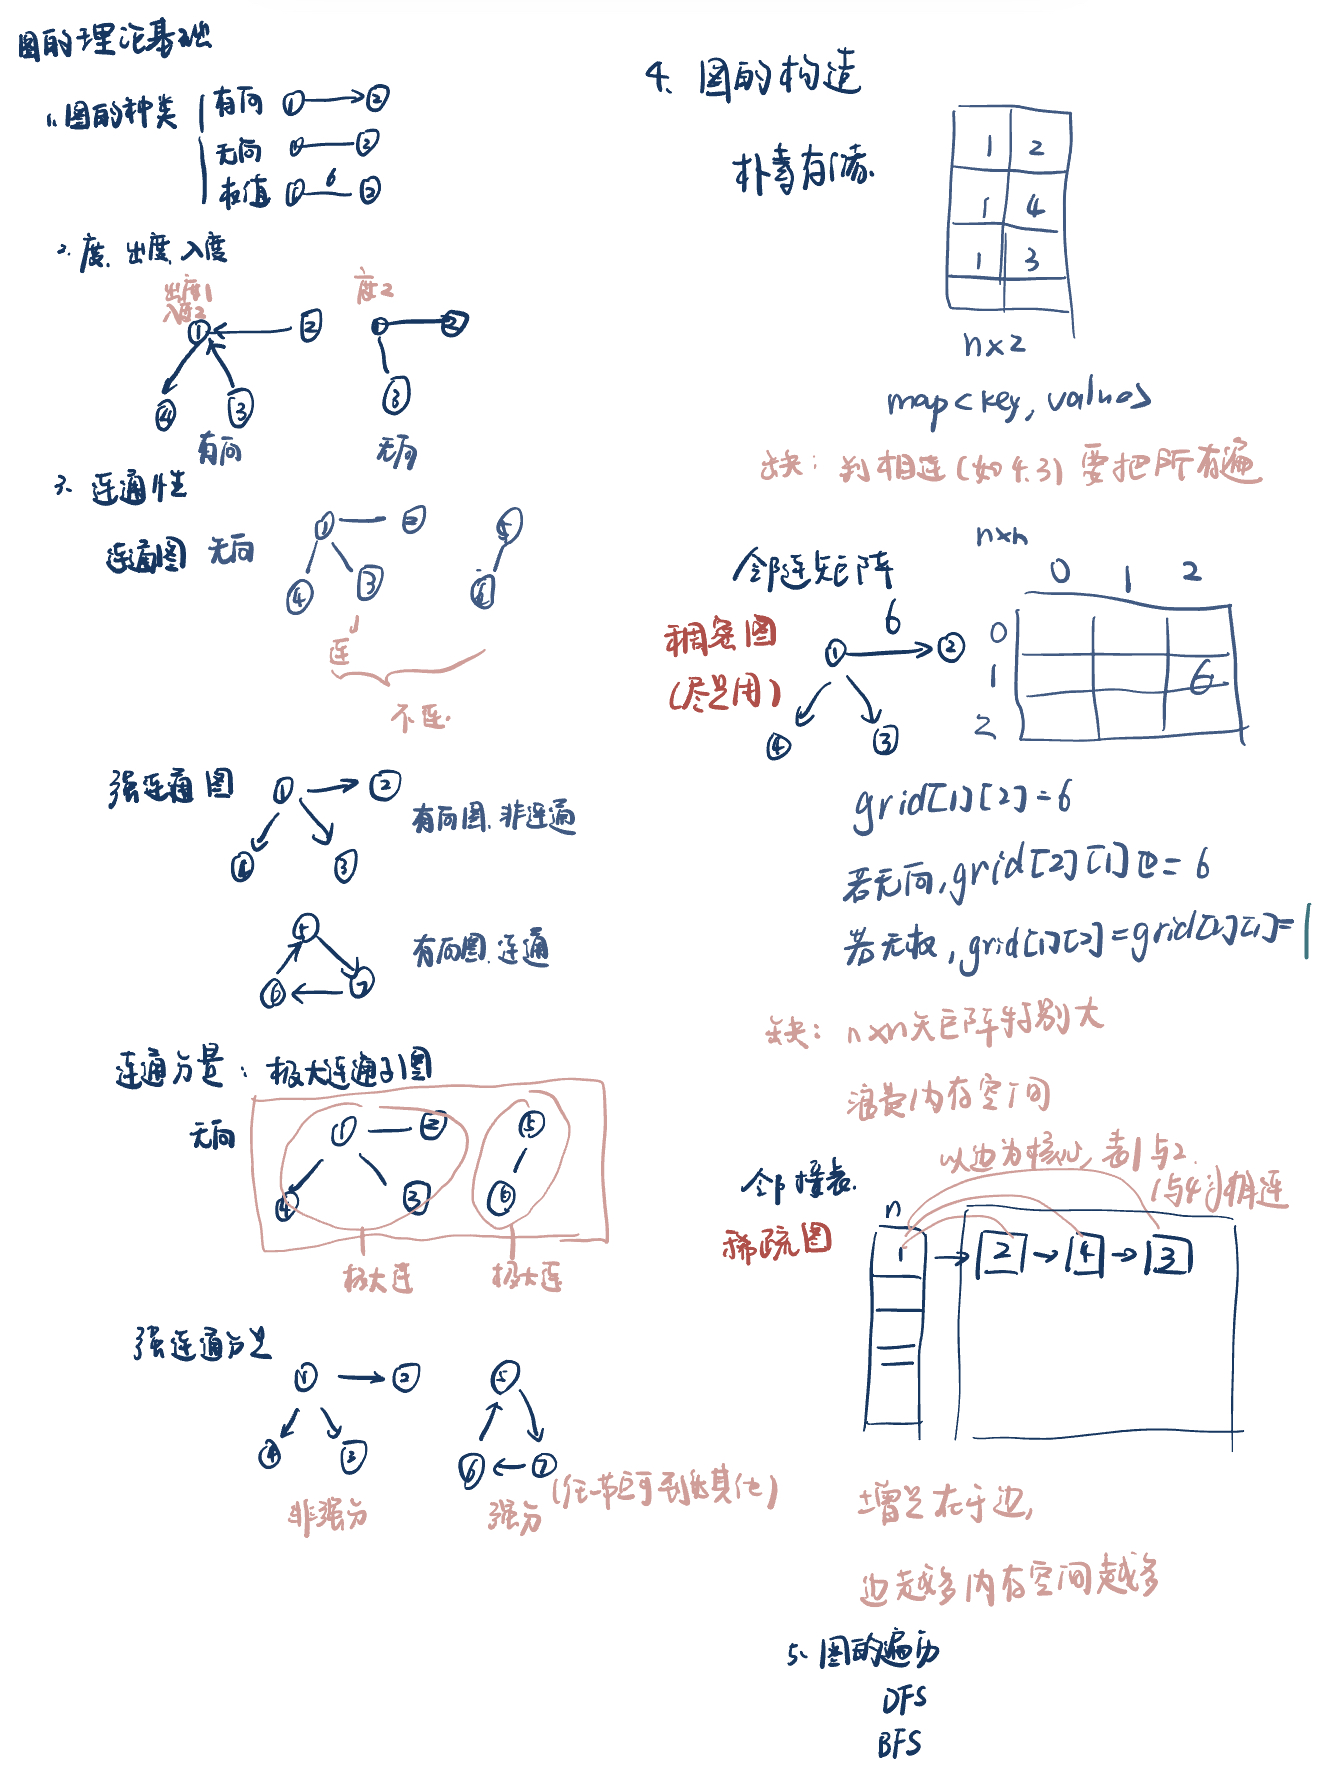 图的理论基础
1. 图的种类
有向 1 2
无向 1 2
权值 1 6 2
2. 度. 出度 入度
出度1
入度2
1 2
4 3
有向
度2
1 2
3
无向
3、连通性
连通图 无向
1 2 5
4 3 6
连
不连.
强连通图
1 2
4 3
有向图. 非连通
5
6 7
有向图. 连通
连通分量: 极大连通子图
无向
1 2 5
4 3 6
极大连 极大连
强连通分量
1 2 5
4 3 6 7
非强分 强分 (任一节点可到达其他)
4、图的构造
朴素存储.
1 2
1 4
1 3
n×2
map<key, values>
缺: 判相连(如4.3) 要把所有遍
邻连矩阵
稠密图
(尽量用)
1 6 2
4 3
n×n
0 1 2
0
1 6
2
grid[1][2]=6
若无向,grid[2][1]也=6
若无权,grid[1][2]=grid[2][1]=1
缺: n×n矩阵特别大
浪费内存空间
邻接表.
稀疏图
以边为核心, 表1与2
1与4为相连
n
1 2 4 3
增量在于边,
边越多内存空间越多
5、图的遍历
DFS
BFS